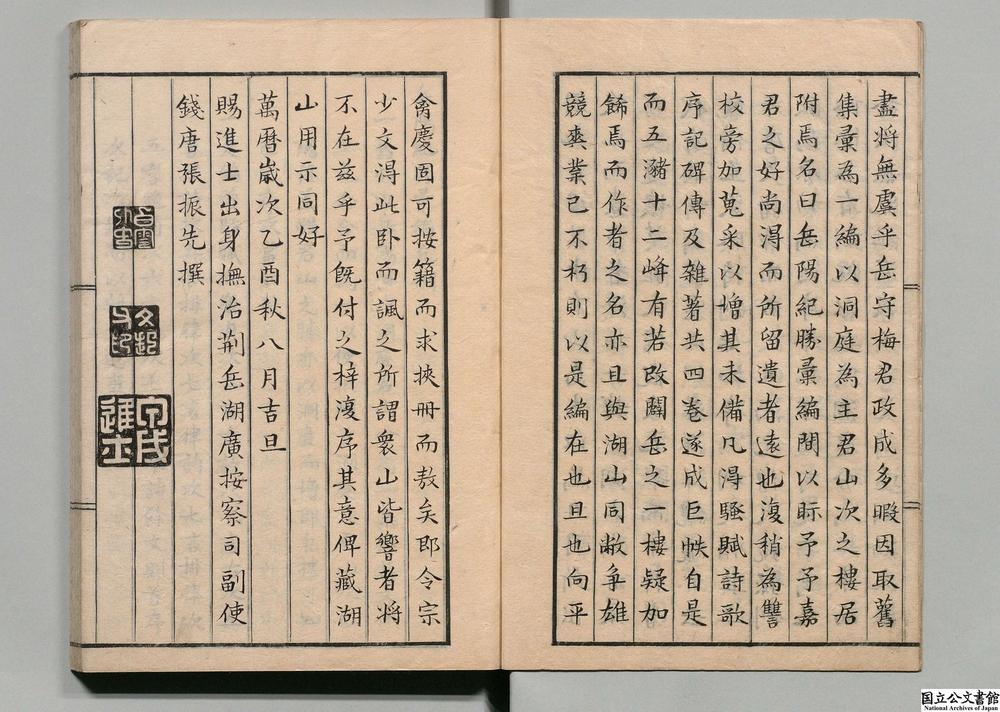 盡將無虞乎岳守梅君政成多暇因取舊
集彙為一編以洞庭為主君山次之樓居
附焉名曰岳陽紀勝彙編間以眎予予嘉
君之好尚得而所留遺者遠也復稍為讐
校旁加蒐采以增其未備凡得騷賦詩歌
序記碑傳及雜著共四卷遂成巨帙自是
而五瀦十二峰有若改闢岳之一樓疑加
餙焉而作者之名亦且與湖山同敝爭雄
競爽業已不朽則以是編在也且也向平
禽慶固可按籍而求挾冊而敖矣即令宗
少文得此卧而諷之所謂衆山皆響者將
不在兹乎予既付之梓復序其意俾藏湖
山用示同好
萬曆嵗次乙酉秋八月吉旦
賜進士出身撫治荊岳湖廣按察司副使
錢唐張振先撰
文起
父印
進士
国立公文書館
National Archives of Japan